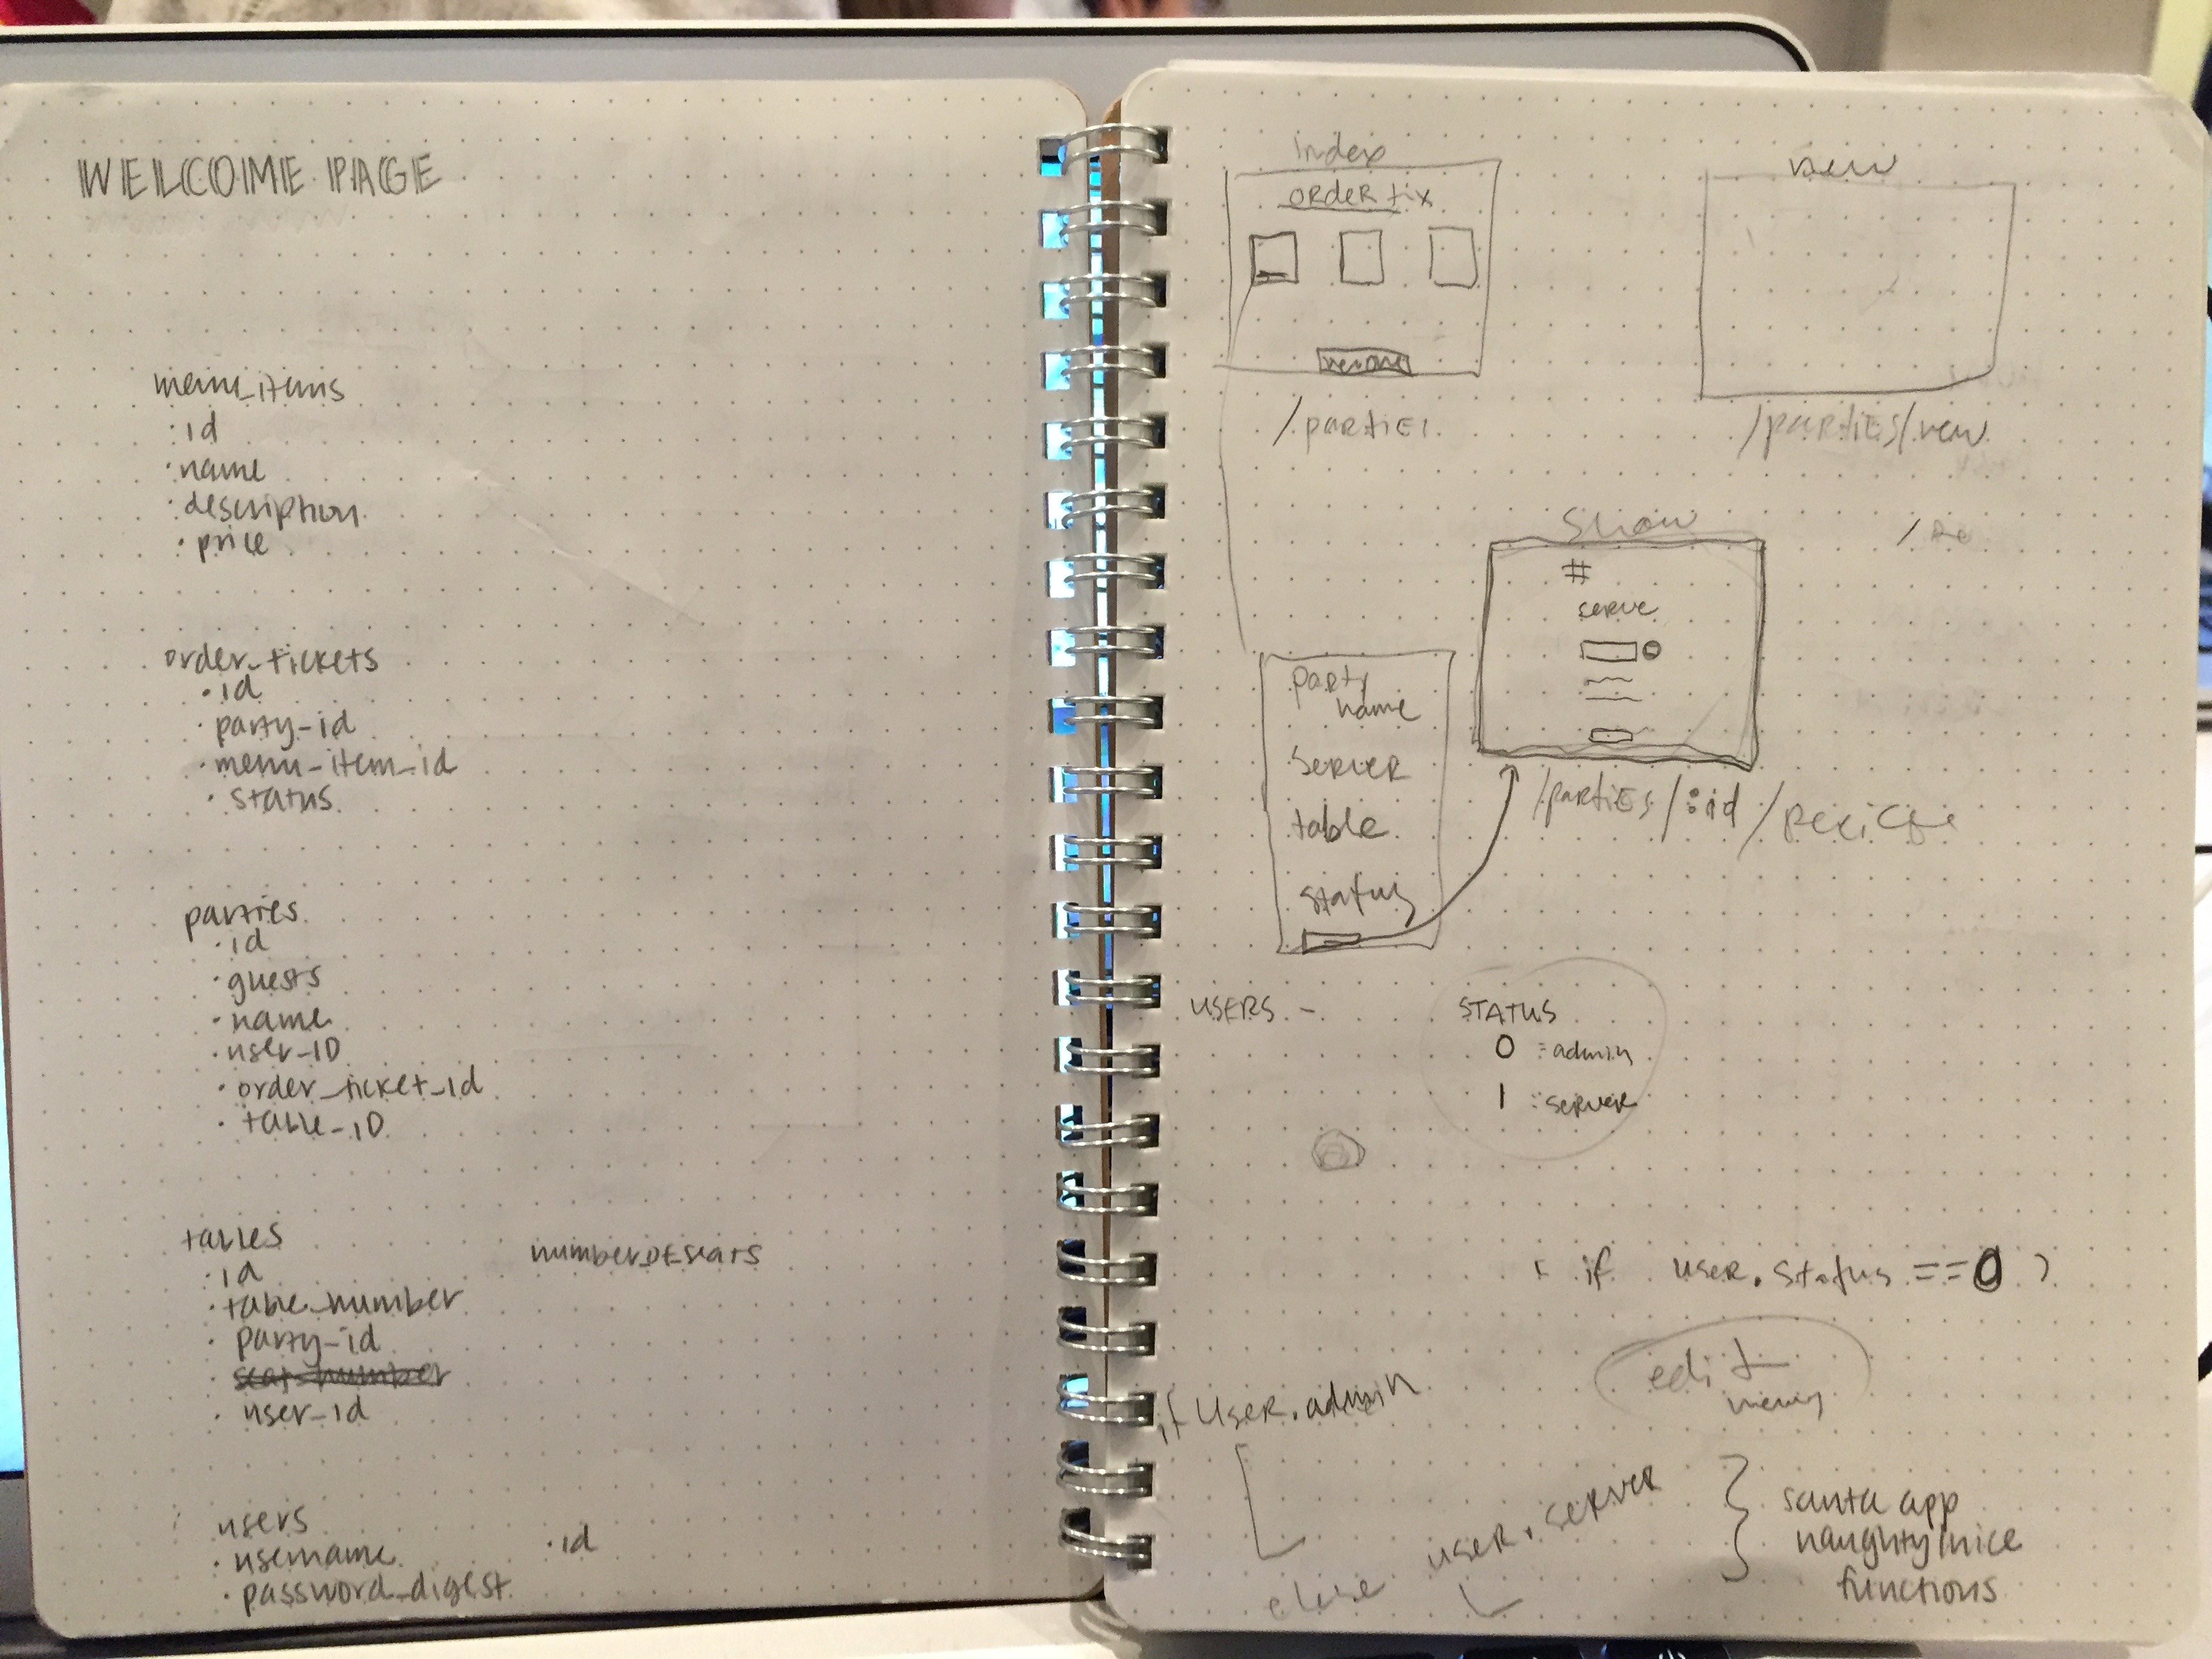 WELCOME PAGE
menu_items
· id
· name
· description
· price
order_tickets
· id
· party_id
· menu_item_id
· status
parties
· id
· guests
· name
· user_ID
· order_ticket_id
· table_ID
tables
· id
· table_number
· party_id
· seat_number
· user_id
number_of_seats
users
· username
· password_digest
· id
index
order tix
/parties
new
/parties/new
show
#
serve
/parties/:id/
party
name
server
table
status
USERS -
STATUS
0 : admin
1 : server
if user.status == 0
edit
menu
if user.admin
else user.server
santa app
naughty/nice
functions